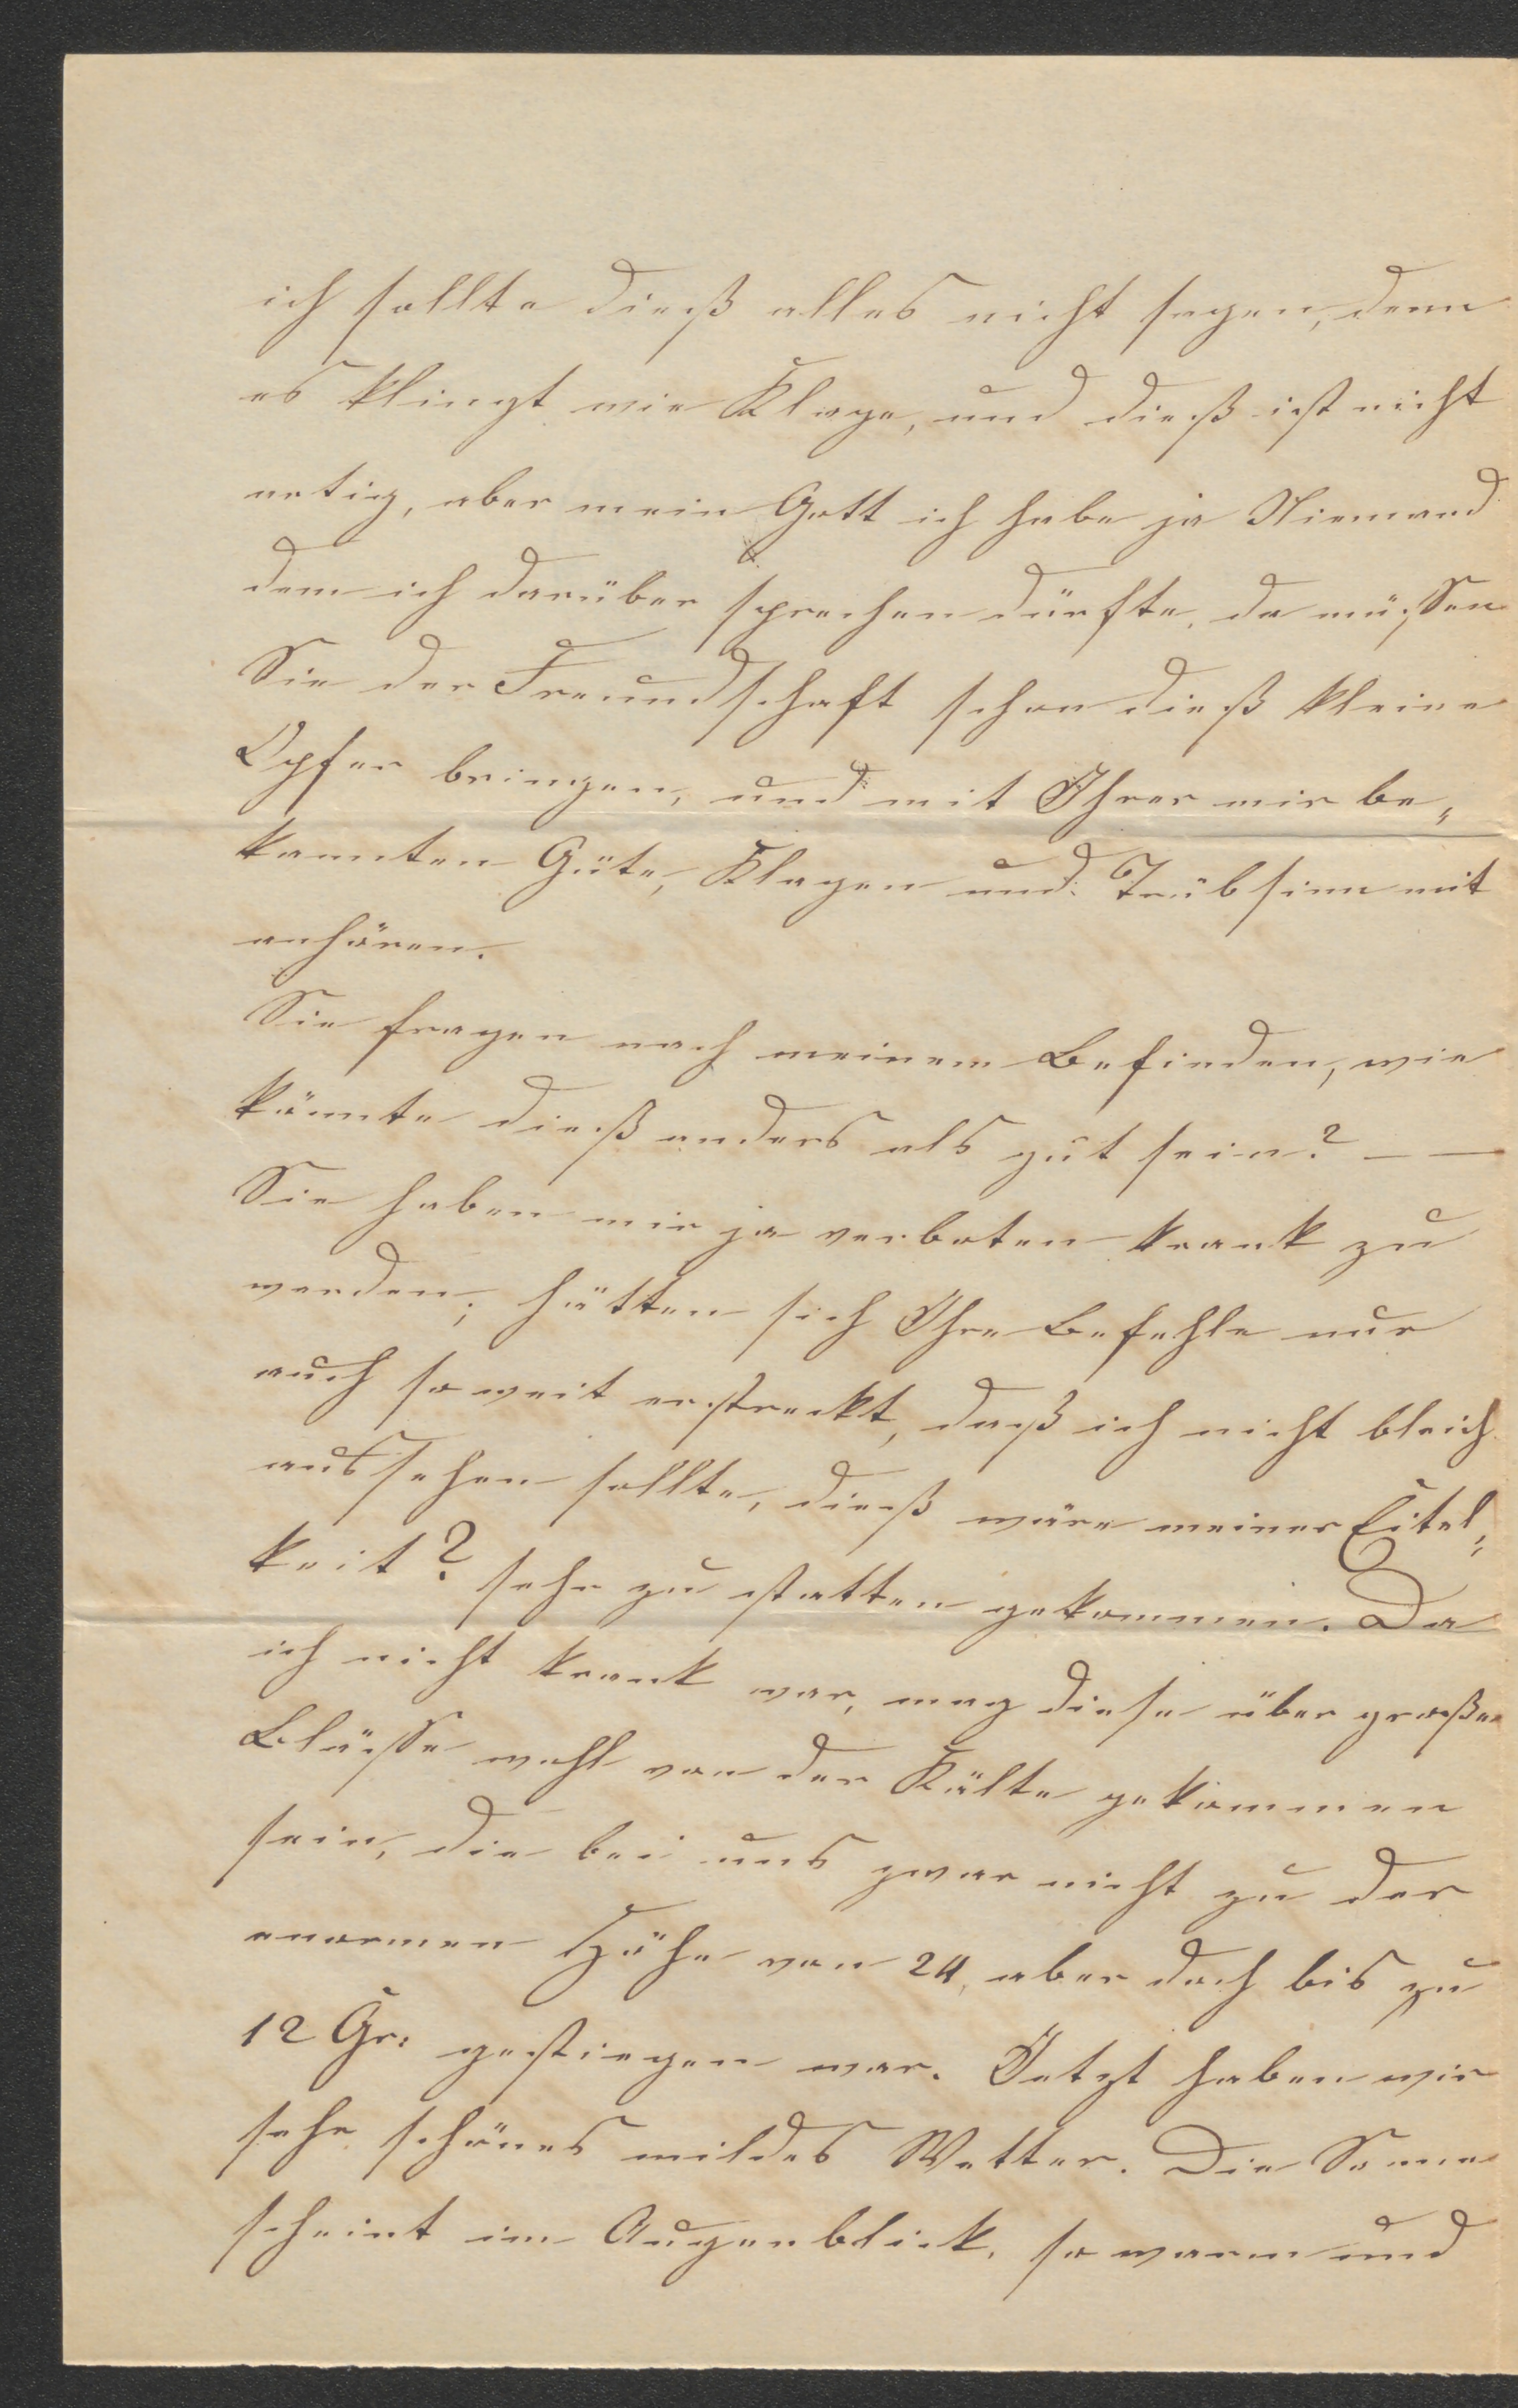 ich sollte dieß alles nicht sagen, denn
es klingt wie Klage, und dieß ist nicht
artig, aber mein Gott ich habe ja Niemand
dem ich darüber sprechen dürfte, da müssen
Sie der Freundschaft schon dieß kleine
Opfer bringen, und mit Ihrer mir be„
kannten Güte, Klagen und Trübsinn mit
anhören.
Sie fragen nach meinem Befinden, wie
könnte dieß anders als gut sein? — —
Sie haben mir ja verboten krank zu
werden; hätten sich Ihre Befehle nur
auch so weit erstreckt, daß ich nicht bleich
aussehen sollte, dieß wäre meiner Eitel„
keit? sehr zu statten gekommen. Da
ich nicht krank war, mag diese über große
Blässe wohl von der Kälte gekommen
sein, die bei uns zwar nicht zu der
enormen Höhe von 24, aber doch bis zu
12 Gr: gestiegen war. Jetzt haben wir
sehr schönes mildes Wetter. Die Sonne
scheint im Augenblick, so warm und